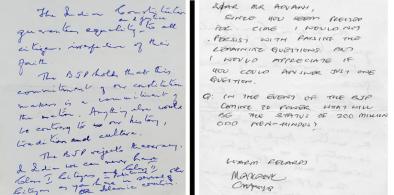 The Indian Constitution
guarantees equality to all
citizens, irrespective of their
faith
The BJP holds that this
commitment of our constitution
makers is a commitment of
the nation. Anything else would
be contrary to our history,
tradition and culture.
The BJP rejects theocracy.
In India we can never have
Class I citizens, &
citizens as
DEAR MR ADVANI,
SINCE YOU SEEM PRESSED
FOR TIME I WOULD NOT
PERSIST WITH PARING THE
REMAINING QUESTIONS. BUT
I WOULD APPRECIATE IF
YOU COULD ANSWER JUST ONE
QUESTION.
Q: IN THE EVENT OF THE BJP
COMING TO POWER WHAT WILL
BE THE STATUS OF 200 MILLION
ODD NON-HINDUS?
WARM REGARDS